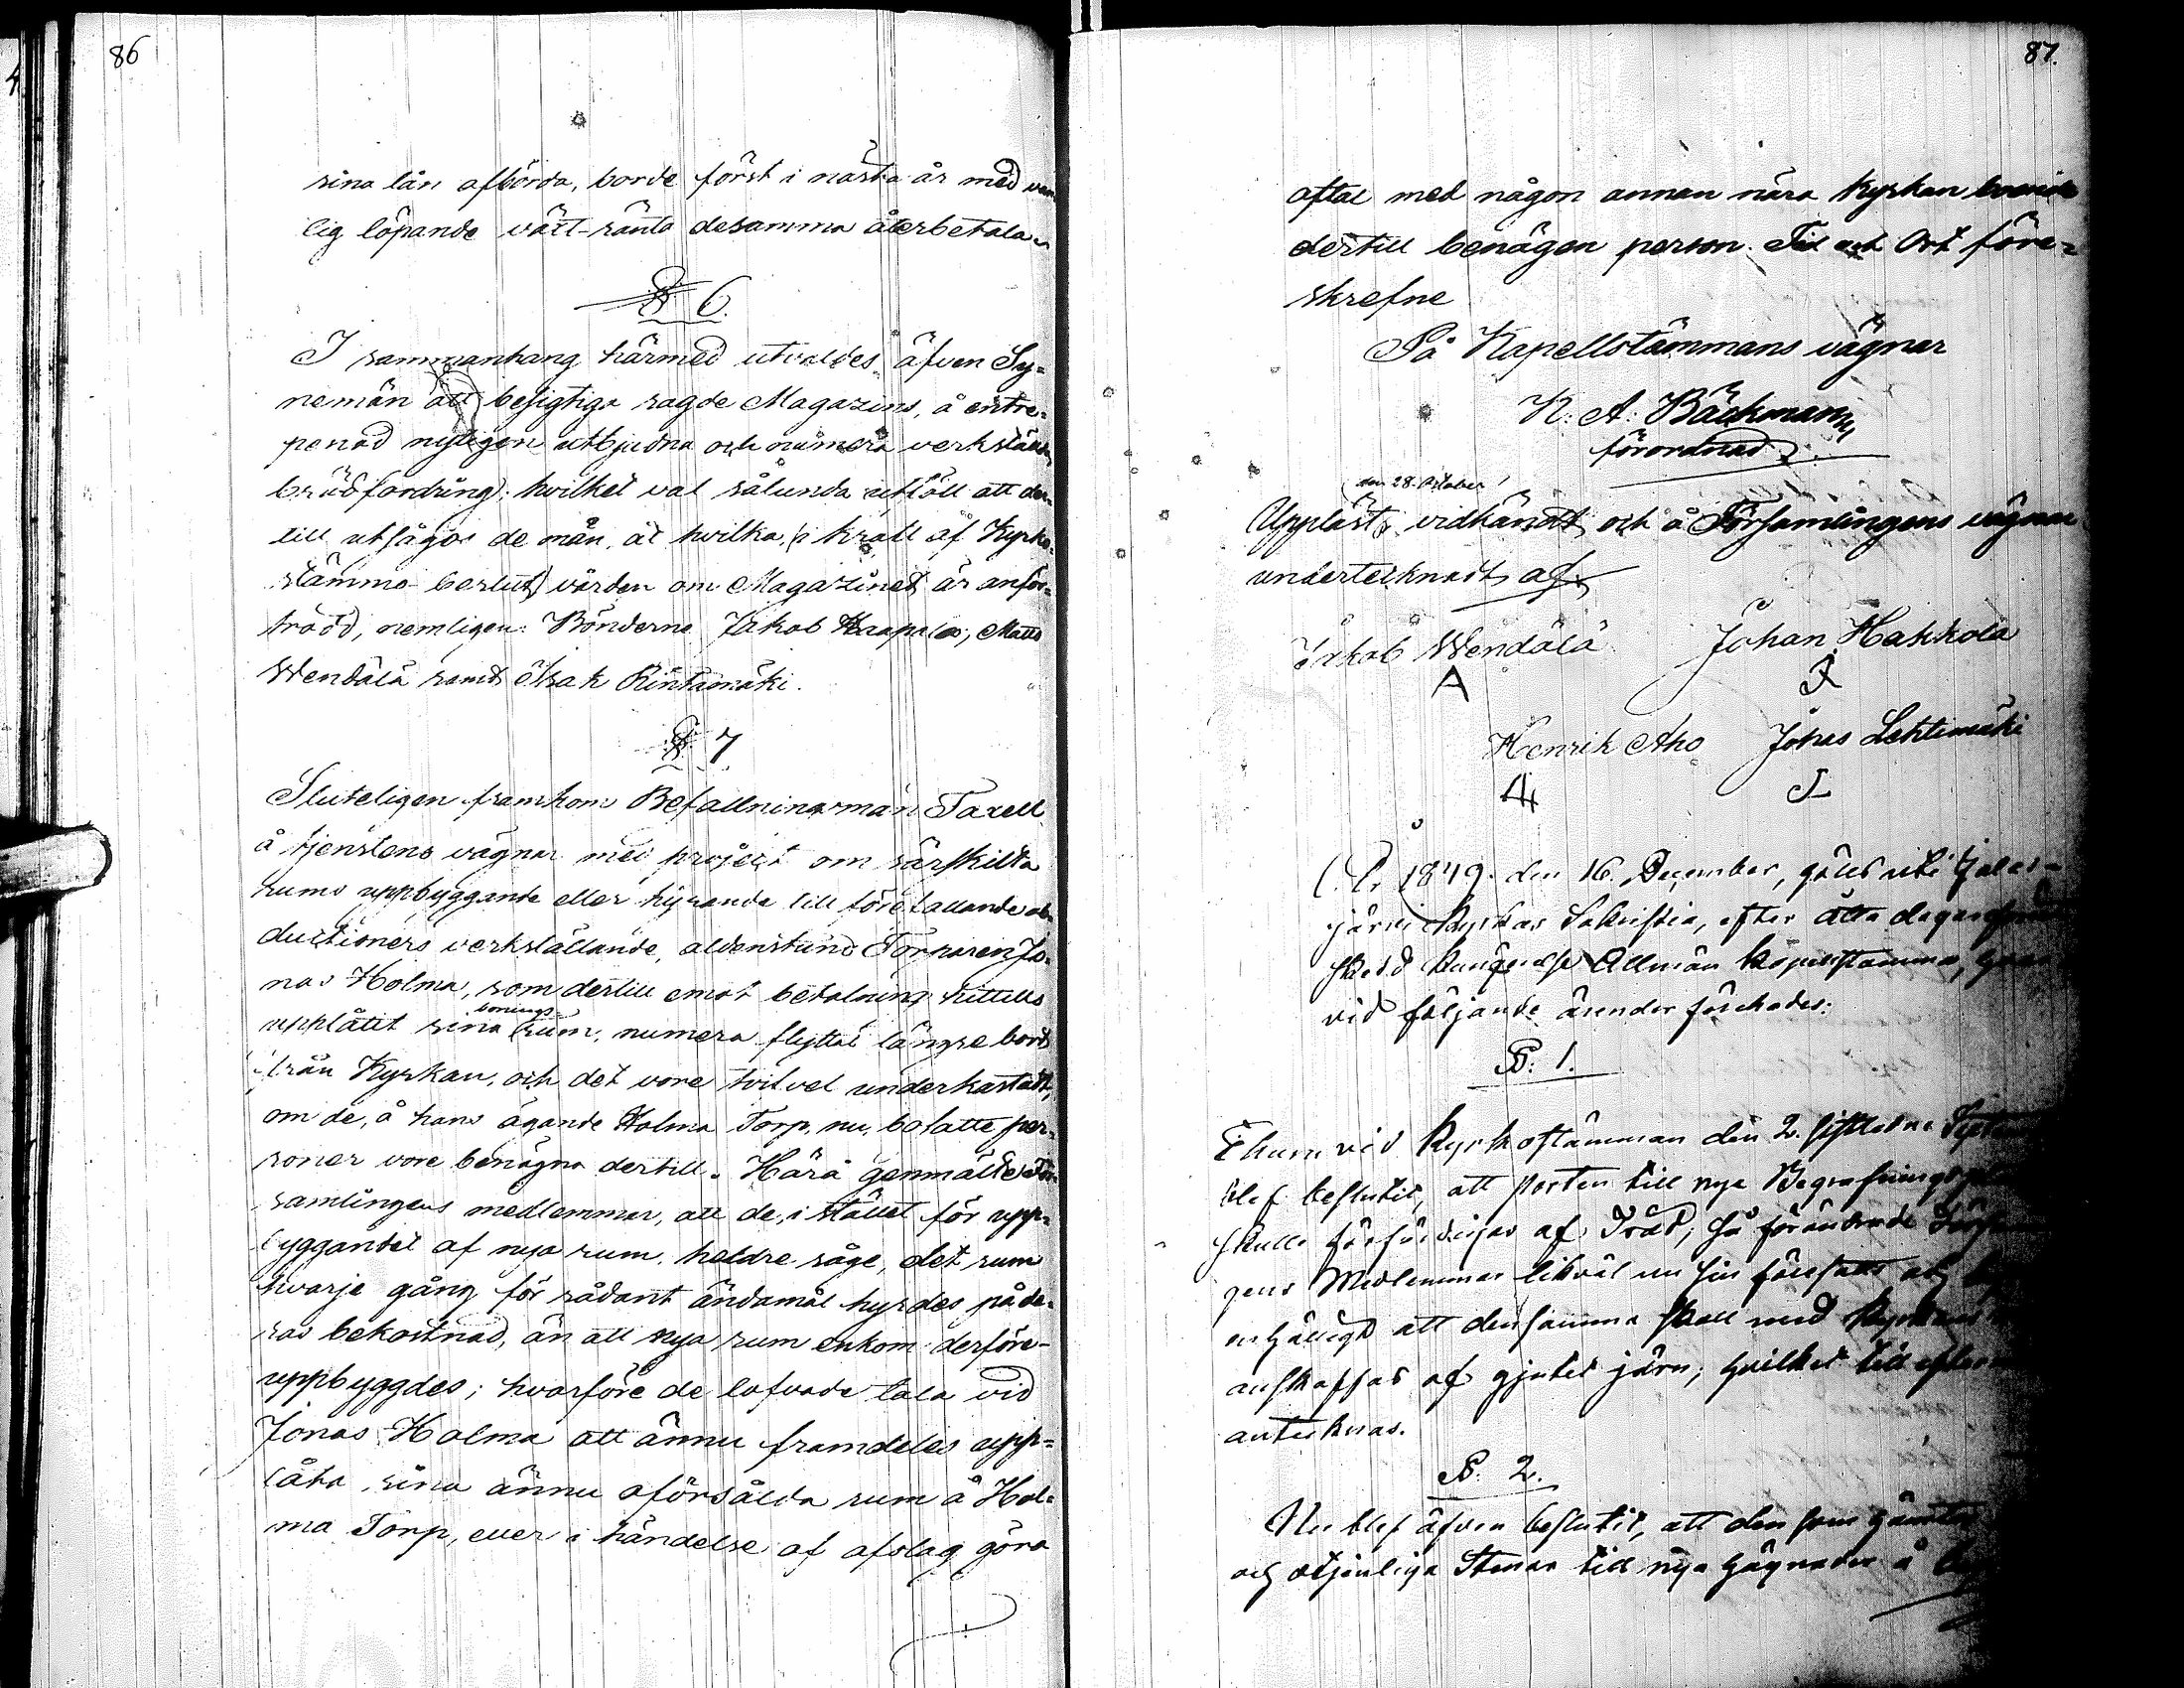 86
sina lån afbörda, borde först i nästa år med van
lig löpande växt-ränta desamma återbetala.
§ 6.
I sammanhang härmed utvaldes äfven Sy=
nemän att besigtiga sagde Magazins, å entre=
penad nyligen utbjudna och numera verkställda
brädfordring; hvilket val sålunda utföll att der=
till utsågos de män, åt hvilka, i kraft af Kyrko=
stämmo-beslut, vården om Magazinet är anför=
trodd, nemligen: Bönderne Jakob Haapala, Matts
Wendälä samt Isak Rintamäki.
§ 7
Sluteligen framkom Befallningsman Taxell
å tjenstens vägnar med project om särskilta
rums uppbyggande eller hyrande till förefallande ob=
ductioners verkställande, aldenstund Torparen Jo=
nas Holma, som dertill emot betalning hittills
bonings-
upplåtit sina rum, numera flyttat längre bort
ifrån Kyrkan, och det vore tvifvel underkastadt,
om de, å hans ägande Holma Torp, nu, bosatte per=
soner vore benägna dertill. Härå genmälte För=
samlingens medlemmar, att de, i stället för upp=
byggandet af nya rum, heldre såge, det rum
hvarje gång för sådant ändamål hyrdes på de=
ras bekostnad, än att nya rum enkom derföre
uppbyggdes; hvarföre de lofvade tala vid
Jonas Holma att ännu framdeles upp=
låta sina ännu oförsålda rum å Hol=
ma Torp, eller i händelse af afslag göra
87.
aftal med någon annan nära Kyrkan boende
dertill benägen person. Tid och Ort före=
skrefne
På Kapellstämmans vägnar
K: A: Bäckman
förordnad.
den 28. October
Uppläst, vidkändt och å Församlingens vägnar
undertecknadt af
Jakob Wendälä Johan Hakkola
Henrik Aho Jonas Lehtimäki
1849 den 16. December, hölls uti
järvi Kyrkas Sakristia, efter åtta dagar
skedd kungörelse Allmän Kapellstämma,
vid följande ärender förehades:
§. 1.
Ehuru vid Kyrkostämman den 2. sistledne
blef beslutit, att porten till nya Begrafnings
skulle förfärdigas af Träd, så förändrade
gens Medlemmar likväl nu sin föresatts och
enhälligt att densamma skall med Kyrkans
anskaffas af gjutet järn, hvilket till
antecknas.
§. 2.
Nu blef äfven beslutit, att den som
och otjenliga Stenar till nya hägnaden å